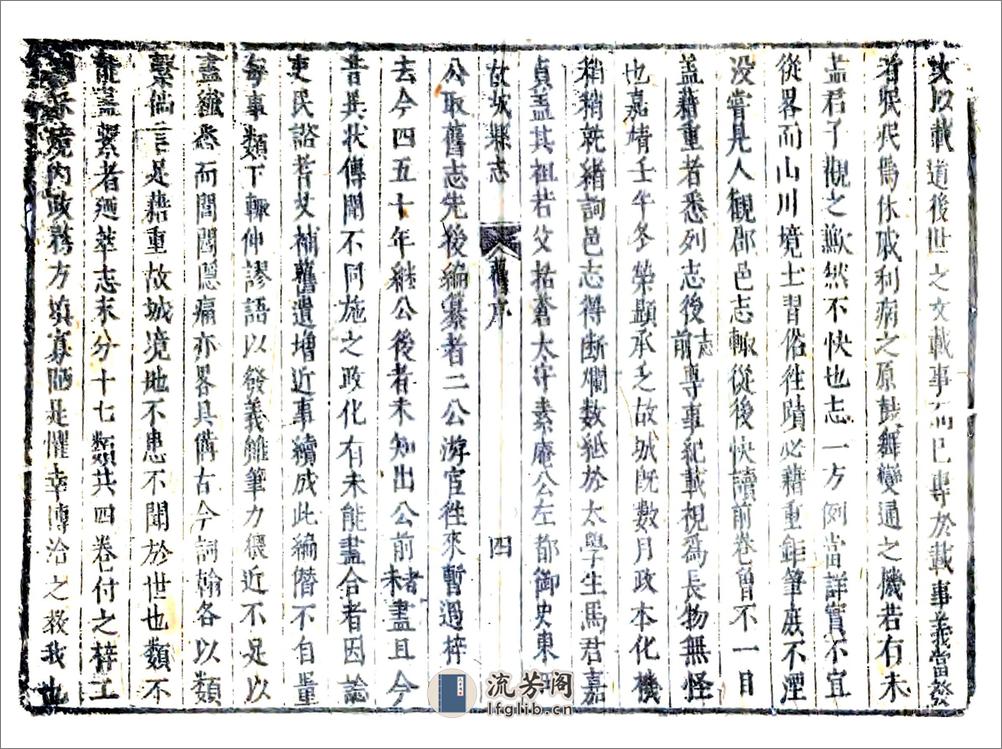 文以載道後世之文載事而已專於載事義當發
者吳民為休戚利病之原鼓舞變通之機若有未
盡君子觀之歉然不快也志一方例當詳實不宜
從畧而山川境土習俗往蹟必藉重鉅筆庶不湮
没嘗見人觀郡邑志輙從後快讀前卷曾不一目
蓋藉重者悉列志後前志專事紀載視為長物無怪
也嘉靖壬午冬榮顯承乏故城既數月政本化機
稍稍就緒詢邑志得断爛數紙於太學生馬君嘉
貞盖其祖若父括蒼太守素庵公左都御史東
故城縣志 舊序 四
公取舊志先後編纂者二公游宦徃來暫過梓
去今四五十年継公後者未知出公前未盡且今
昔異狀傳聞不同施之政化有未能盡合者因論
吏民諮耆艾補舊遺增近事續成此編僭不自量
每事類下輙伸謬語以發義雖筆力猥近不足以
盡纎悉而閭閻隱痛亦畧具俻古今詞翰各以類
繫仙言足藉重故城境地不患不聞於世也類不
能盡繫者廼萃志末分十七類共四卷付之梓工
境内政務方填寡陋是懼幸博洽之教我也
流芳阁
lfglib.cn